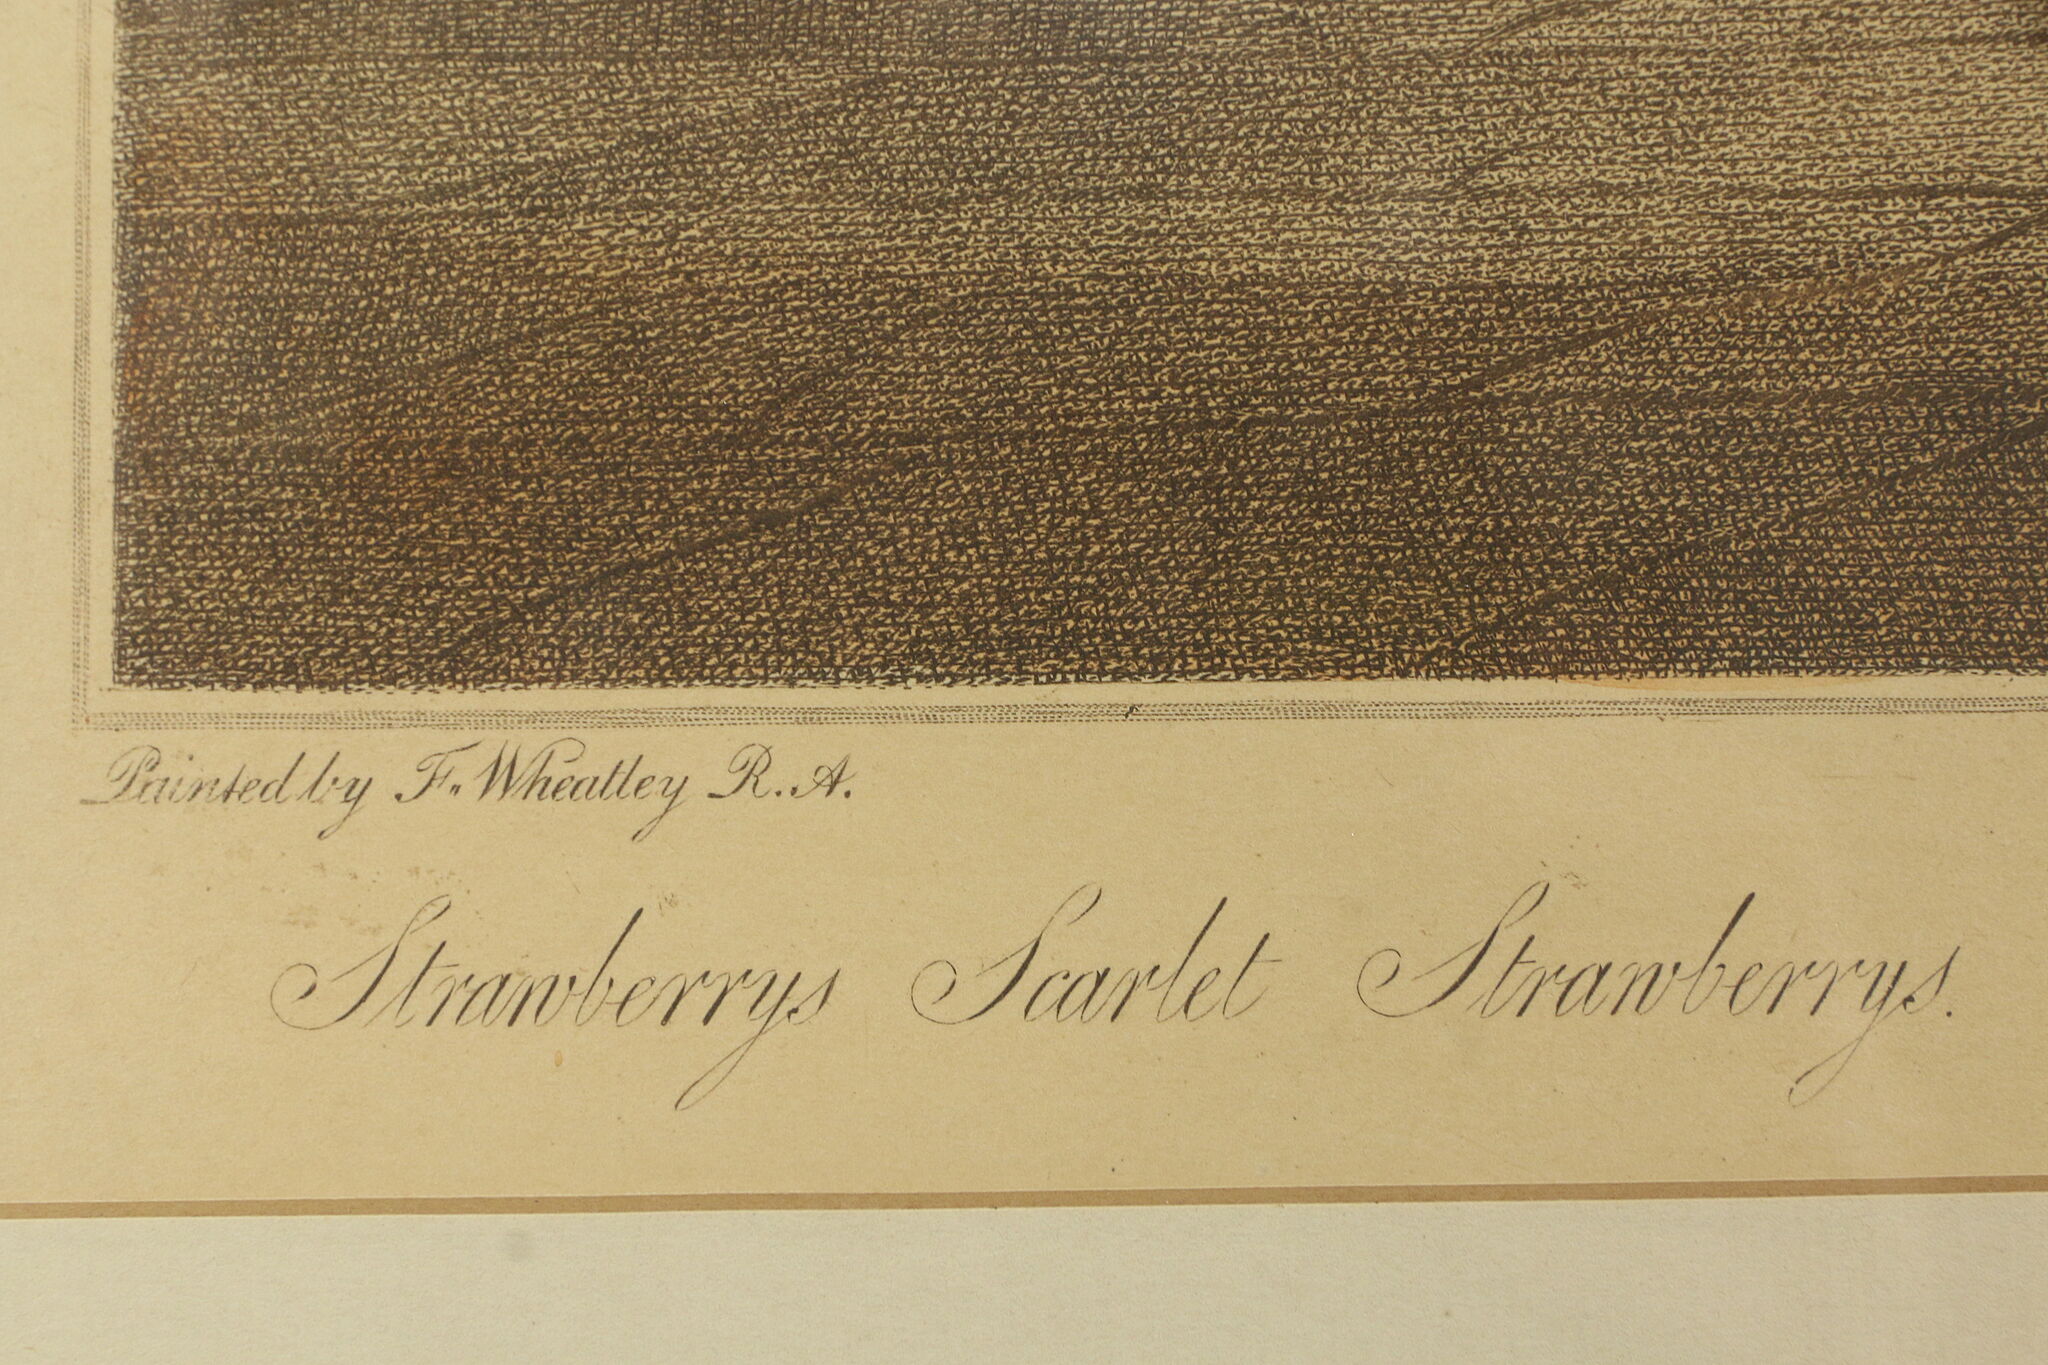 Painted by F. Wheatley R.A.
Strawberrys Scarlet Strawberrys.